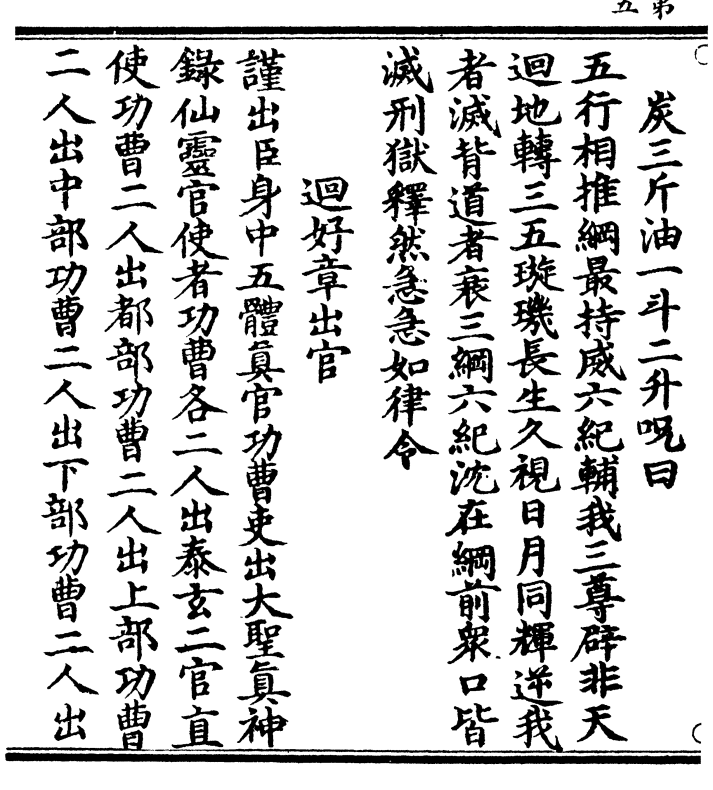 第五
炭三斤油一斗二升呪曰
五行相推綱最持威六紀輔我三尊辟非天
迴地轉三五璇璣長生久視日月同輝逆我
者滅背道者衰三綱六紀沈在綱前衆口皆
滅刑獄釋然急急如律令
迴好章出官
謹出臣身中五體眞官功曹吏出大聖眞神
錄仙靈官使者功曹各二人出泰玄二官直
使功曹二人出都部功曹二人出上部功曹
二人出中部功曹二人出下部功曹二人出